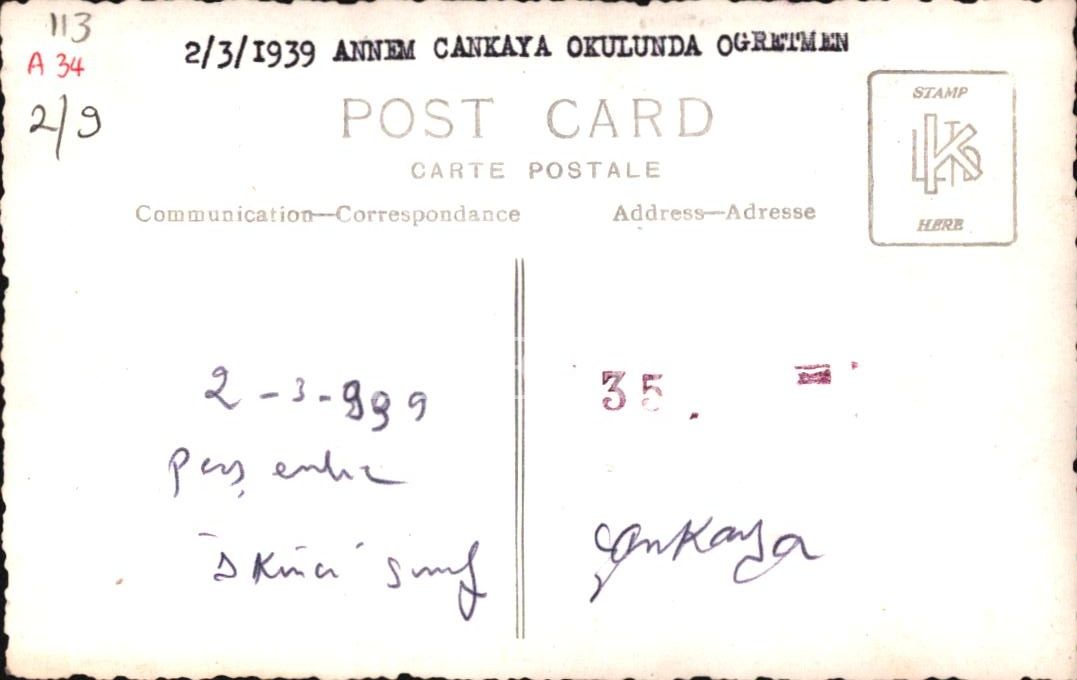 113
A 34
2/9
2/3/1939 ANNEM CANKAYA OKULUNDA OGRETMEN
POST CARD
CARTE POSTALE
Communication—Correspondance
Address—Adresse
STAMP
HERE
2-3-939
Perşembe
İkinci sınıf
35.
Çankaya